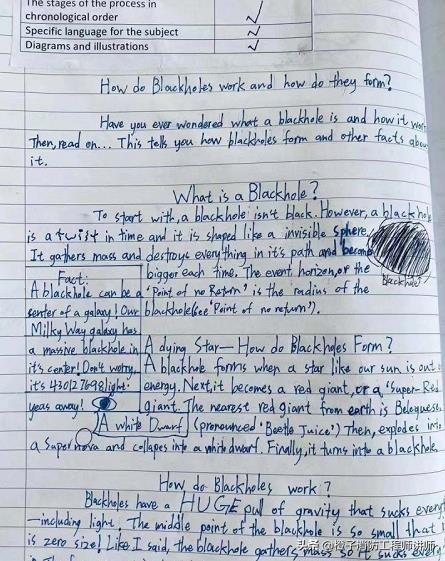 The stages of the process in
chronological order
Specific language for the subject
Diagrams and illustrations
How do Blackholes work and how do they form?
Have you ever wondered what a blackhole is and how it
Then, read on... This tells you how blackholes form and other facts
it.
What is a Blackhole?
To start with, a blackhole isn't black. However, a
is a twist in time and it is shaped like a invisible sphere.
It gathers mass and destroys everything in it's path and
bigger each time. The event horizon, or the
Blackhole
Fact:
A blackhole can be a
center of a galaxy! Our
Milky Way galaxy has
a massive blackhole in
it's center! Don't worry,
light
yeas away!
'Point of no Return' is the radius of the
blackhole(see 'Point of no return').
A dying Star—How do Blackholes Form?
A blackhole forms when a star like our sun is out
energy. Next, it becomes a red giant, or a 'Super-Red
giant. The nearest red giant from earth is
A white Dwarf (pronounced 'Beetle Juice') Then, explodes
a Supernova and collapes into a white dwarf. Finally, it turns into a blackhole.
How do Blackholes work?
Blackholes have a HUGE pull of gravity that sucks
—including light. The middle point of the blackhole is so small that
is zero size! Like I said, the blackhole gathers mass so it sucks
头条 @橙子消防工程师讲师